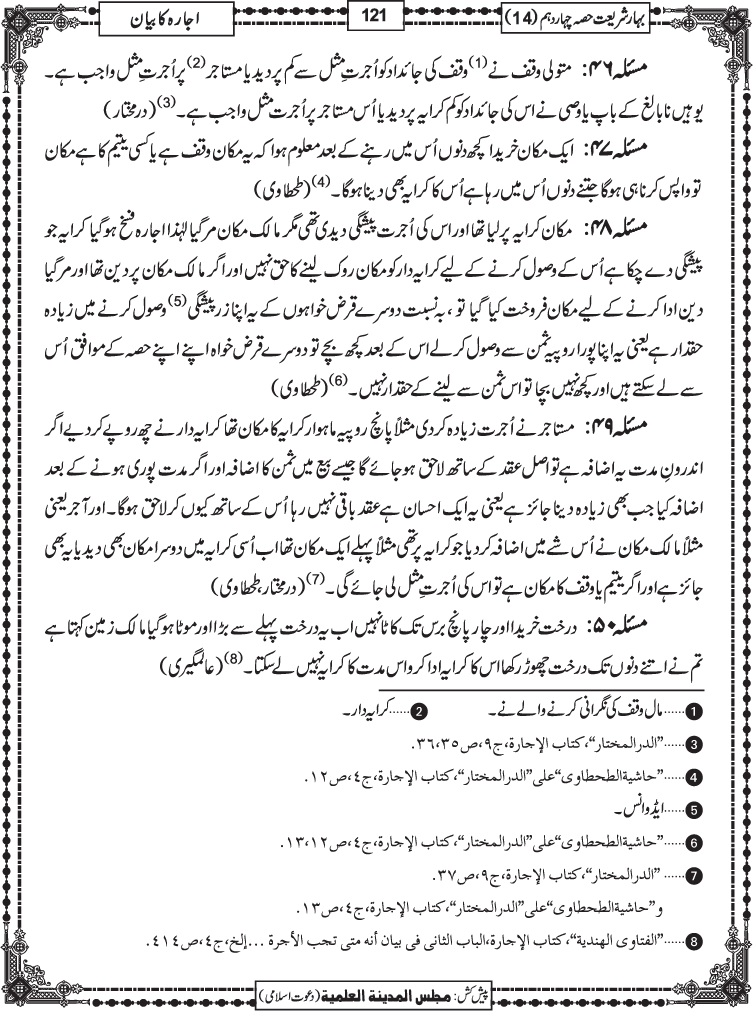 بہارِ شریعت حصہ چہاردہم (14)
121
اجارہ کا بیان
مسئلہ ۴۶: متولی وقف نے (1) وقف کی جائداد کو اُجرتِ مثل سے کم پر دیدیا مستاجر (2) پر اُجرتِ مثل واجب ہے۔
یوہیں نابالغ کے باپ یا وصی نے اس کی جائداد کو کم کرایہ پر دیدیا اُس مستاجر پر اُجرتِ مثل واجب ہے۔ (3) (درمختار)
مسئلہ ۴۷: ایک مکان خریدا کچھ دنوں اُس میں رہنے کے بعد معلوم ہوا کہ یہ مکان وقف ہے یا کسی یتیم کا ہے مکان
تو واپس کرنا ہی ہوگا جتنے دنوں اُس میں رہا ہے اُس کا کرایہ بھی دینا ہوگا۔ (4) (طحطاوی)
مسئلہ ۴۸: مکان کرایہ پر لیا تھا اور اس کی اُجرت پیشگی دیدی تھی مگر مالک مکان مر گیا لہٰذا اجارہ فسخ ہوگیا کرایہ جو
پیشگی دے چکا ہے اُس کے وصول کرنے کے لیے کرایہ دار کو مکان روک لینے کا حق نہیں اور اگر مالک مکان پر دین تھا اور مر گیا
دین ادا کرنے کے لیے مکان فروخت کیا گیا تو، بہ نسبت دوسرے قرض خواہوں کے یہ اپنا زرِ پیشگی (5) وصول کرنے میں زیادہ
حقدار ہے یعنی یہ اپنا پورا روپیہ ثمن سے وصول کرلے اس کے بعد کچھ بچے تو دوسرے قرض خواہ اپنے اپنے حصہ کے موافق اُس
سے لے سکتے ہیں اور کچھ نہیں بچا تو اس ثمن سے لینے کے حقدار نہیں۔ (6) (طحطاوی)
مسئلہ ۴۹: مستاجر نے اُجرت زیادہ کردی مثلاً پانچ روپیہ ماہوار کرایہ کا مکان تھا کرایہ دار نے چھ روپے کردیے اگر
اندرونِ مدت یہ اضافہ ہے تو اصل عقد کے ساتھ لاحق ہوجائے گا جیسے بیع میں ثمن کا اضافہ اور اگر مدت پوری ہونے کے بعد
اضافہ کیا جب بھی زیادہ دینا جائز ہے یعنی یہ ایک احسان ہے عقد باقی نہیں رہا اُس کے ساتھ کیوں کر لاحق ہوگا۔ اور آجر یعنی
مثلاً مالک مکان نے اُس شے میں اضافہ کردیا جو کرایہ پر تھی مثلاً پہلے ایک مکان تھا اب اُسی کرایہ میں دوسرا مکان بھی دیدیا یہ بھی
جائز ہے اور اگر یتیم یا وقف کا مکان ہے تو اس کی اُجرتِ مثل لی جائے گی۔ (7) (درمختار، طحطاوی)
مسئلہ ۵۰: درخت خریدا اور چار پانچ برس تک کاٹا نہیں اب یہ درخت پہلے سے بڑا اور موٹا ہوگیا مالک زمین کہتا ہے
تم نے اتنے دنوں تک درخت چھوڑ رکھا اس کا کرایہ ادا کرو اس مدت کا کرایہ نہیں لے سکتا۔ (8) (عالمگیری)
1 ......مال وقف کی نگرانی کرنے والے نے۔ 2 ......کرایہ دار۔
3 ......”الدرالمختار“،کتاب الإجارة،ج۹،ص۳۵،۳۶.
4 ......”حاشیة الطحطاوی“علی”الدرالمختار“،کتاب الإجارة،ج٤،ص۱۲.
5 ......ایڈوانس۔
6 ......”حاشیة الطحطاوی“علی”الدرالمختار“،کتاب الإجارة،ج٤،ص۱۲،۱۳.
7 ......”الدرالمختار“،کتاب الإجارة،ج۹،ص۳۷.
و”حاشیة الطحطاوی“علی”الدرالمختار“،کتاب الإجارة،ج٤،ص۱۳.
8 ......”الفتاوی الهندیة“،کتاب الإجارة،الباب الثانی فی بیان أنه متی تجب الأجرة ...إلخ،ج٤،ص٤١٤.
پیش کش: مجلس المدینة العلمیة (دعوت اسلامی)